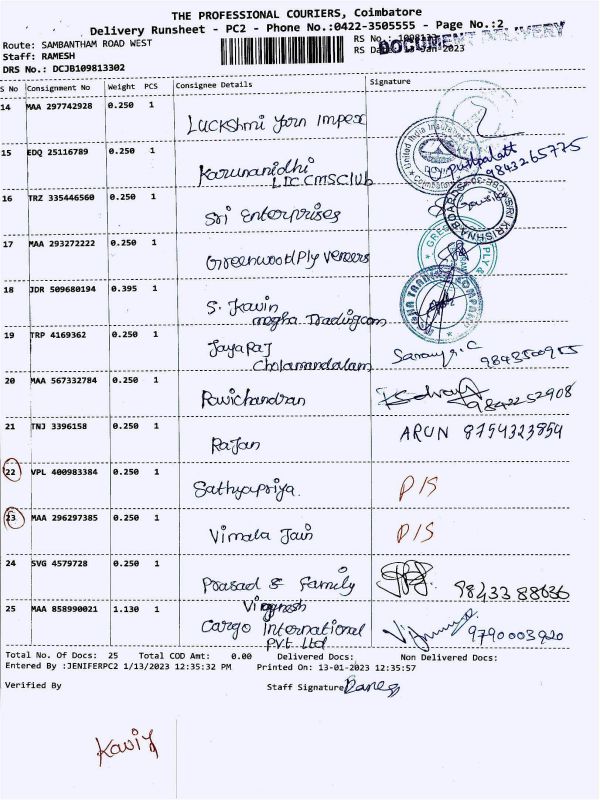 THE PROFESSIONAL COURIERS, Coimbatore
Delivery Runsheet - PC2 - Phone No.:0422-3505555 - Page No.:2
Route: SAMBANTHAM ROAD WEST RS No.:
DOCUMENT DELIVERY
Staff: RAMESH RS 13-Jan-2023
DRS No.: DCJB109813302
S No Consignment No Weight PCS Consignee Details Signature
14 MAA 297742928 0.250 1
Luckshmi yarn Impex
15 EDQ 25116789 0.250 1
Karunanidhi
LIC CMS Club
9843265775
16 TRZ 335446560 0.250 1
Sri Enterprises
17 MAA 293272222 0.250 1
Greenwood Ply Veneers
18 JDR 509680194 0.395 1
S. Kavin
megha Trading com
19 TRP 4169362 0.250 1
Jayaraj
Cholamandalam
20 MAA 567332784 0.250 1
Ravichandran 9842252908
21 TNJ 3396158 0.250 1
Rajan ARUN 8754323854
22 VPL 400983384 0.250 1
Sathyapriya. P/S
23 MAA 296297385 0.250 1
Vimala Jain P/S
24 SVG 4579728 0.250 1
Prasad & Family 9843388636
25 MAA 858990021 1.130 1
Vignesh
Cargo International 9790003920
Pvt. Ltd
Total No. Of Docs: 25 Total COD Amt: 0.00 Delivered Docs: Non Delivered Docs:
Entered By :JENIFERPC2 1/13/2023 12:35:32 PM Printed On: 13-01-2023 12:35:57
Verified By Staff Signature